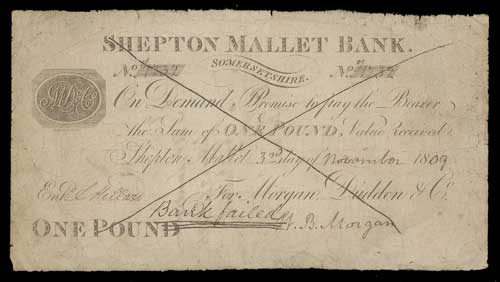 SHEPTON MALLET BANK.
SOMERSETSHIRE.
No. 7732 No. 7732
On Demand I Promise to pay the Bearer
the Sum of ONE POUND, Value Received
Shepton Mallet 3rd day of November 1809
Entd.
For Morgan, Dudden & Co.
Bank failed
B. Morgan
ONE POUND